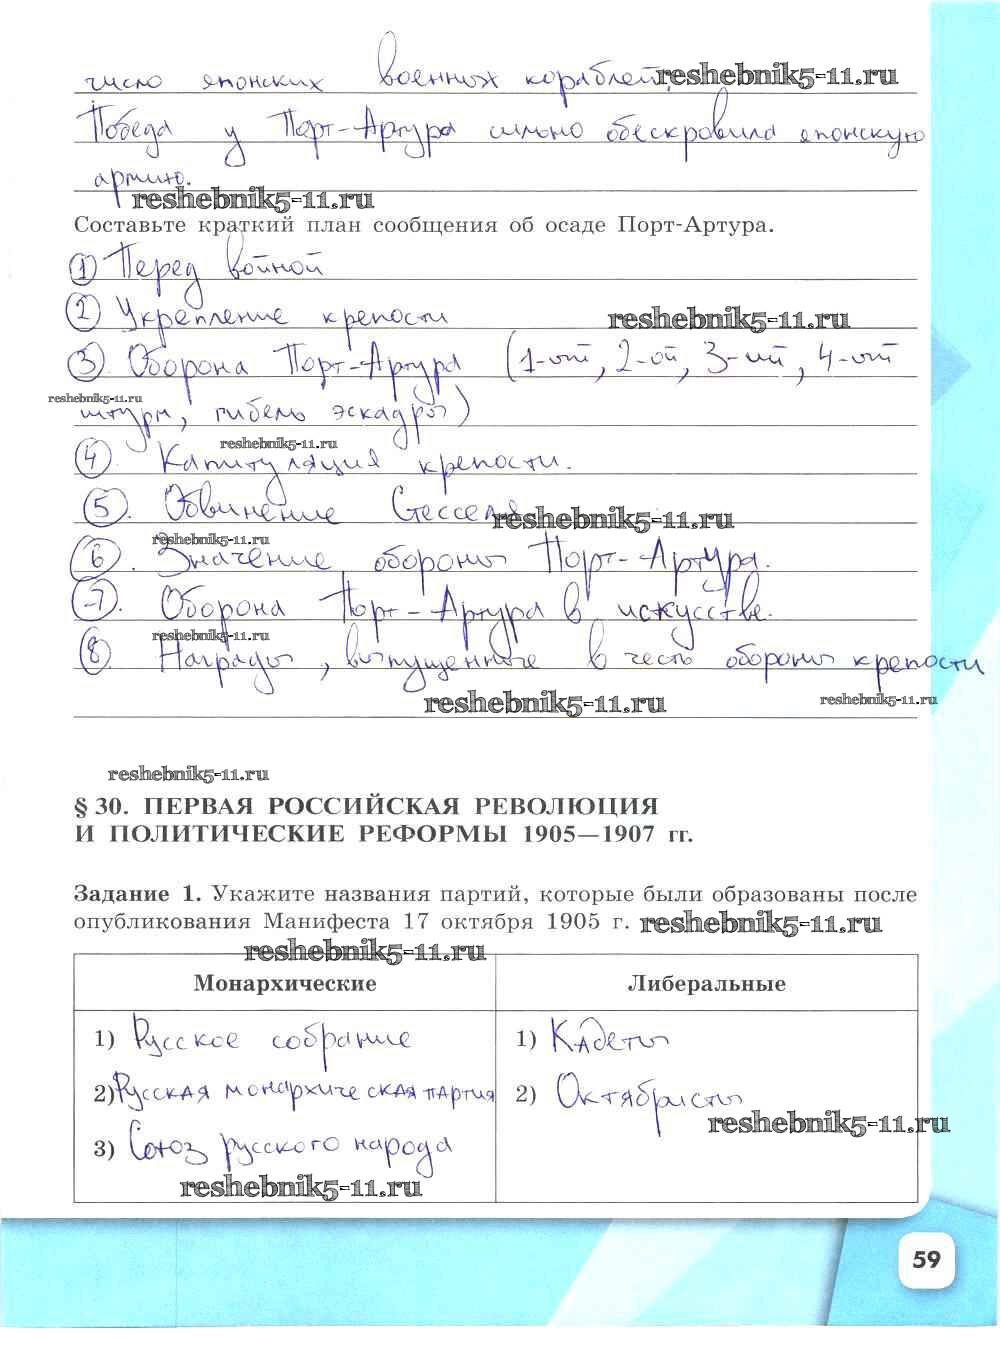 число японских военных кораблей. reshebnik5-11.ru
Победа у Порт-Артура сильно обескровила японскую
армию.
reshebnik5-11.ru
Составьте краткий план сообщения об осаде Порт-Артура.
1) Перед войной
2) Укрепление крепости reshebnik5-11.ru
3) Оборона Порт-Артура (1-ый, 2-ой, 3-ий, 4-ый
reshebnik5-11.ru
штурм, гибель эскадры)
reshebnik5-11.ru
4. Капитуляция крепости.
5. Обвинение Стесселя reshebnik5-11.ru
reshebnik5-11.ru
6. Значение обороны Порт-Артура.
7. Оборона Порт-Артура в искусстве.
reshebnik5-11.ru
8. Награды, выпущенные в честь обороны крепости
reshebnik5-11.ru reshebnik5-11.ru
reshebnik5-11.ru
§ 30. ПЕРВАЯ РОССИЙСКАЯ РЕВОЛЮЦИЯ
И ПОЛИТИЧЕСКИЕ РЕФОРМЫ 1905—1907 гг.
Задание 1. Укажите названия партий, которые были образованы после
опубликования Манифеста 17 октября 1905 г. reshebnik5-11.ru
reshebnik5-11.ru
Монархические Либеральные
1) Русское собрание 1) Кадеты
2) Русская монархическая партия 2) Октябристы
reshebnik5-11.ru
3) Союз русского народа
reshebnik5-11.ru
59